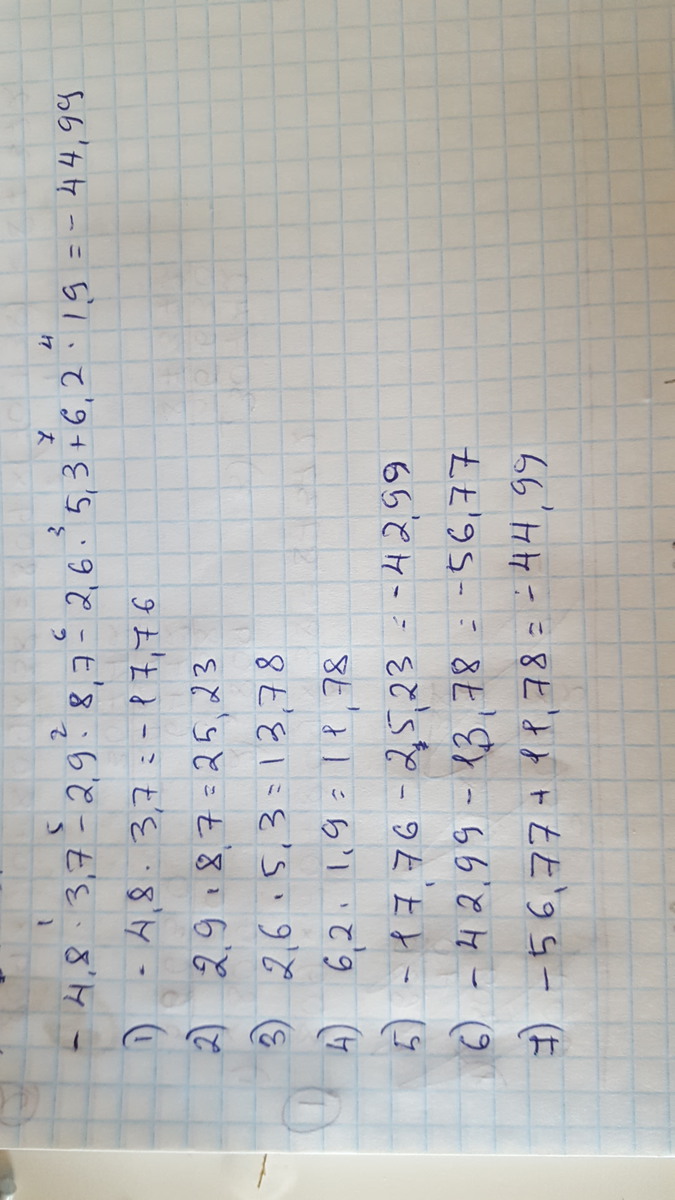 - 4,8 · 3,7 - 2,9 · 8,7 - 2,6 · 5,3 + 6,2 · 1,9 = - 44,99
1) - 4,8 · 3,7 = - 17,76
2) 2,9 · 8,7 = 25,23
3) 2,6 · 5,3 = 13,78
4) 6,2 · 1,9 = 11,78
5) - 17,76 - 25,23 = - 42,99
6) - 42,99 - 13,78 = - 56,77
7) - 56,77 + 11,78 = - 44,99
1